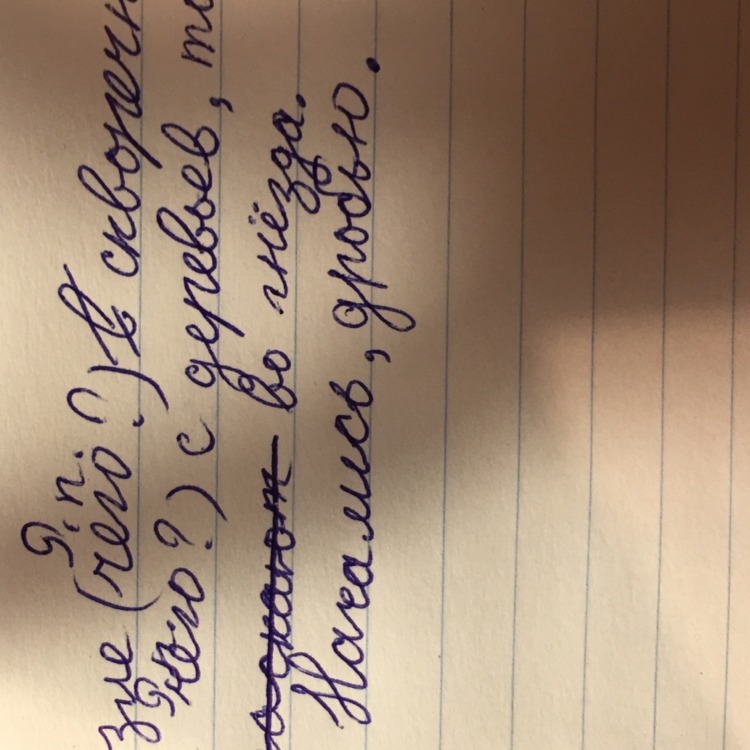 Р. п.
зле (чего?) в скворечн
чего?) с деревьев,
во гнёзда.
Начались, дробью.